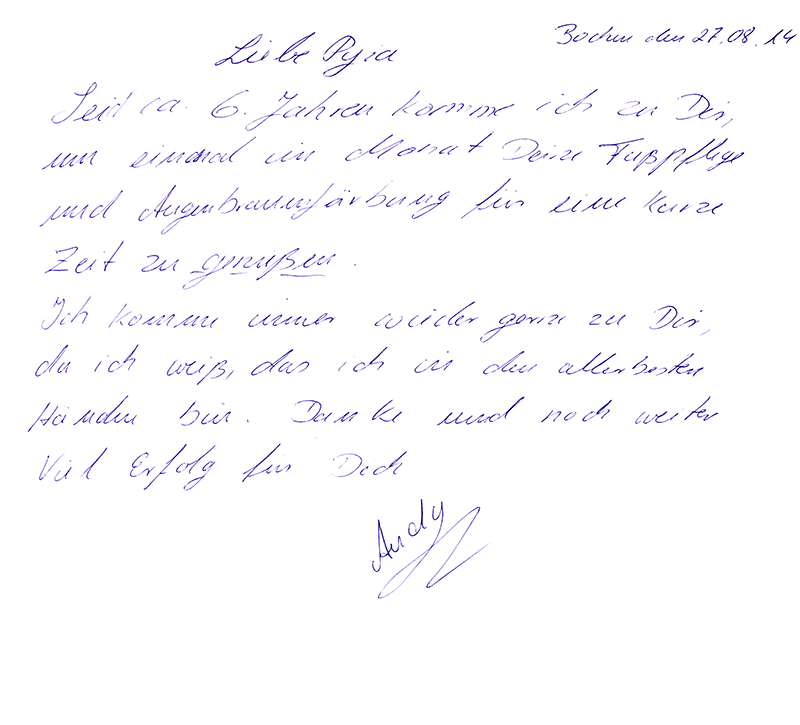 Bochum den 27.08.14
Liebe Pyia
Seit ca. 6. Jahren komme ich zu Dir,
um einmal im Monat Deine Fußpflege
und Augenbrauenfärbung für eine kurze
Zeit zu genießen.
Ich komme immer wieder gerne zu Dir,
da ich weiß, das ich in den allerbesten
Händen bin. Danke und noch weiter
Viel Erfolg für Dich
Andy